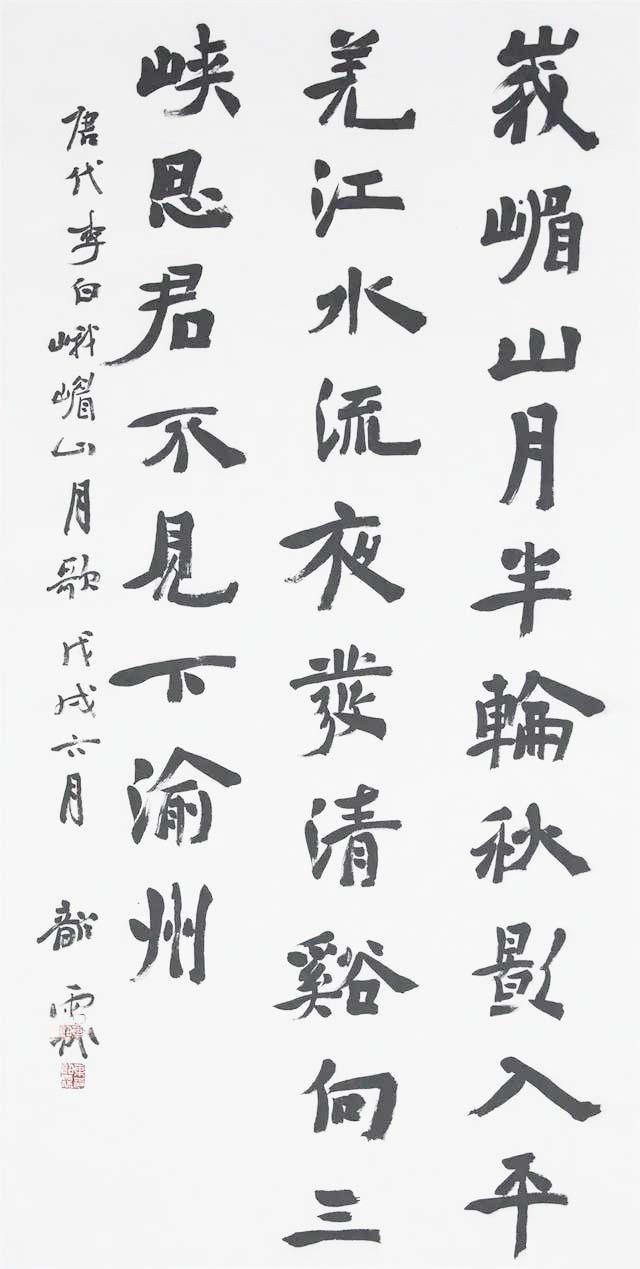 峩嵋山月半輪秋影入平
羌江水流夜發清谿向三
峡思君不見下渝州
唐代李白峨嵋山月歌 戊戌六月